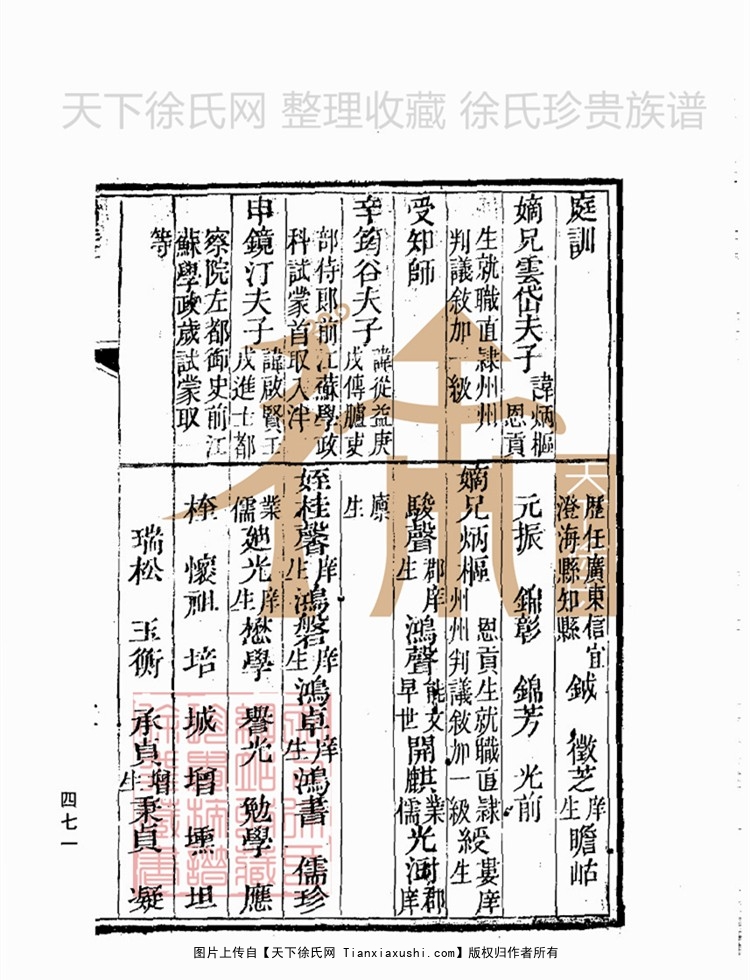 天下徐氏网 整理收藏 徐氏珍贵族谱
庭訓
嫡兄雲岱夫子 諱炳樞恩貢
生就職直隸州州判議敘加一級
受知師
辛筠谷夫子 諱從益庚戌傳臚吏
部侍郎前江蘇學政科試蒙首取入泮
申鏡汀夫子 諱啟賢壬戌進士都
察院左都御史前江蘇學政歲試蒙取一
等
歷任廣東信宜澄海縣知縣 鉞 徵芝庠生 瞻岵
元振 錦彰 錦芳 光前
嫡兄炳樞 恩貢生就職直隸州州判議敘加一級 綬 婁庠生
駿聲郡庠生 鴻聲能文早世 開麒業儒 光 郡庠
廩生
姪桂馨庠生 鴻磐庠生 鴻卓庠生 鴻書 儒珍
業儒 廸光庠生 懋學 譽光 勉學 應
懷祖 培 城 增 壎 坦
瑞松 玉衡 承貞增生 秉貞 凝
四七一
图片上传自【天下徐氏网 Tianxiaxushi.com】版权归作者所有